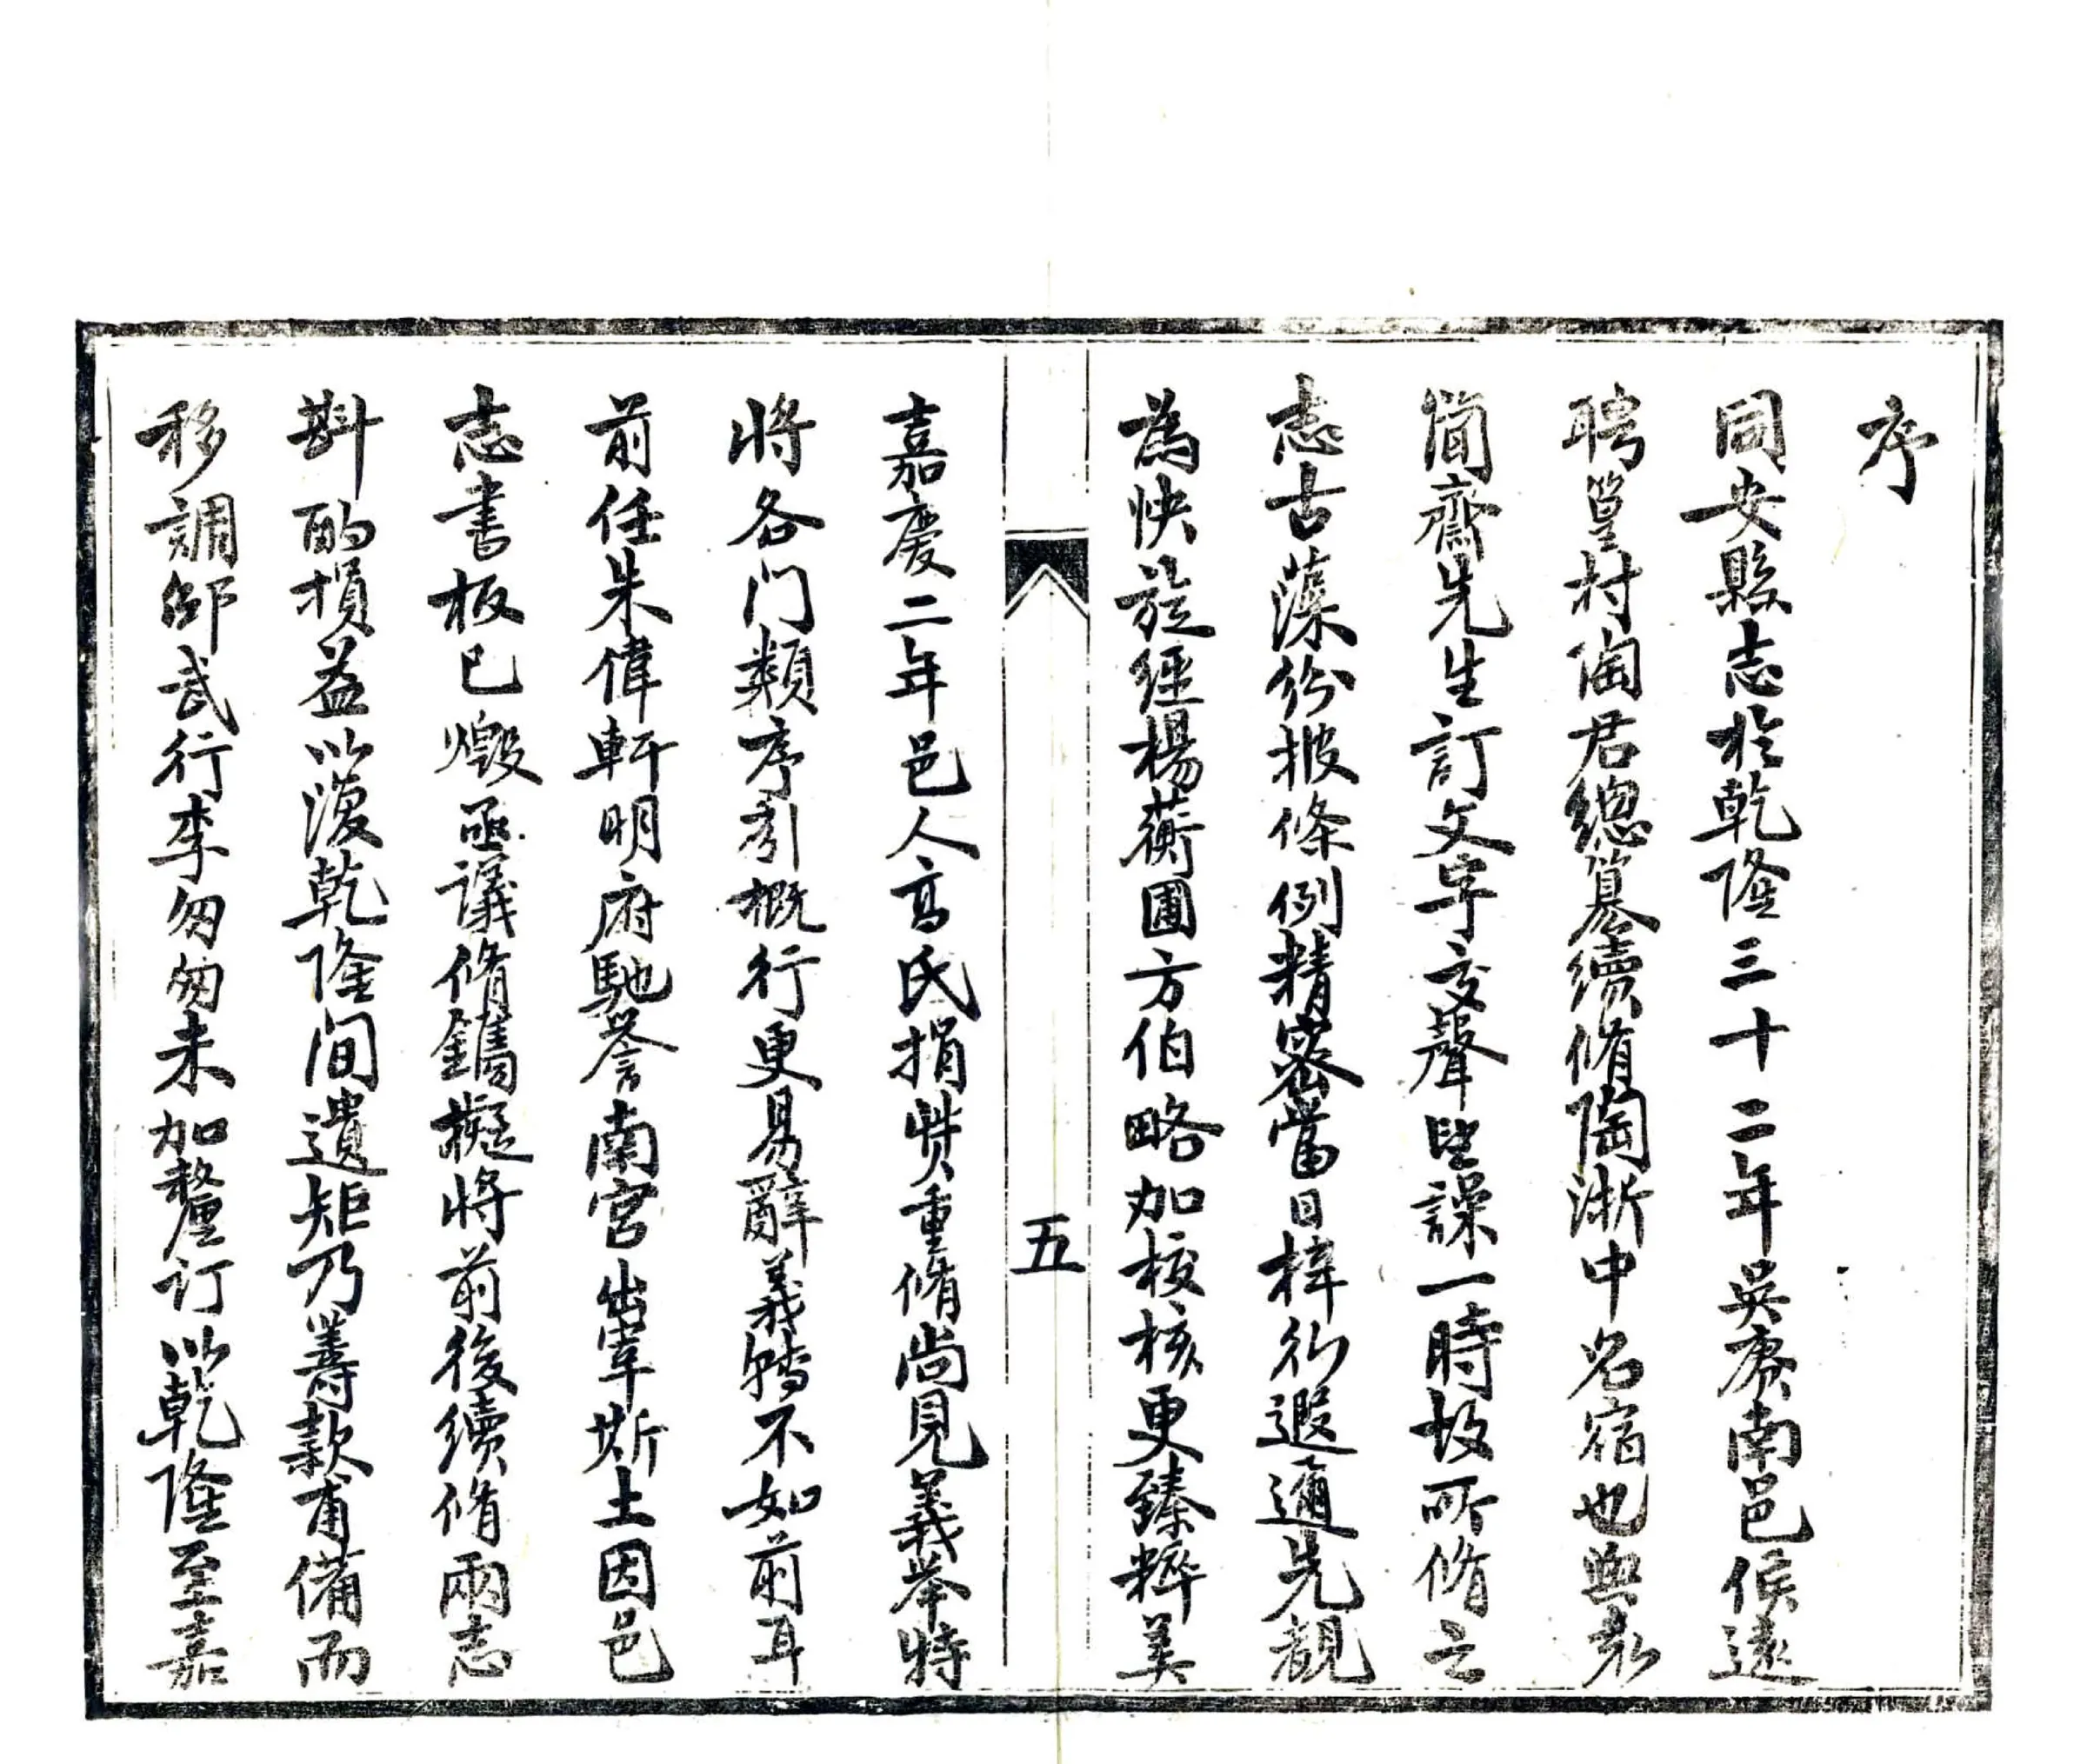 序
同安縣志於乾隆三十二年吳賡南邑侯遠
聘篁村陶君總纂續脩陶浙中名宿也與袁
簡齋先生訂文字交聲望譟一時故所脩之
志古藻紛披條例精密當日梓行遐邇先覩
為快旋經楊蘅圃方伯略加校核更臻粹美
五
嘉慶二年邑人高氏捐貲重脩尚見義舉特
將各門類序引概行更易辭義轉不如前耳
前任朱偉軒明府馳譽南宮出宰斯土因邑
志書板已燬亟議脩鐫擬將前後續脩兩志
斟酌損益以復乾隆間遺矩乃籌款甫備而
移調邵武行李匆匆未加釐订以乾隆至嘉